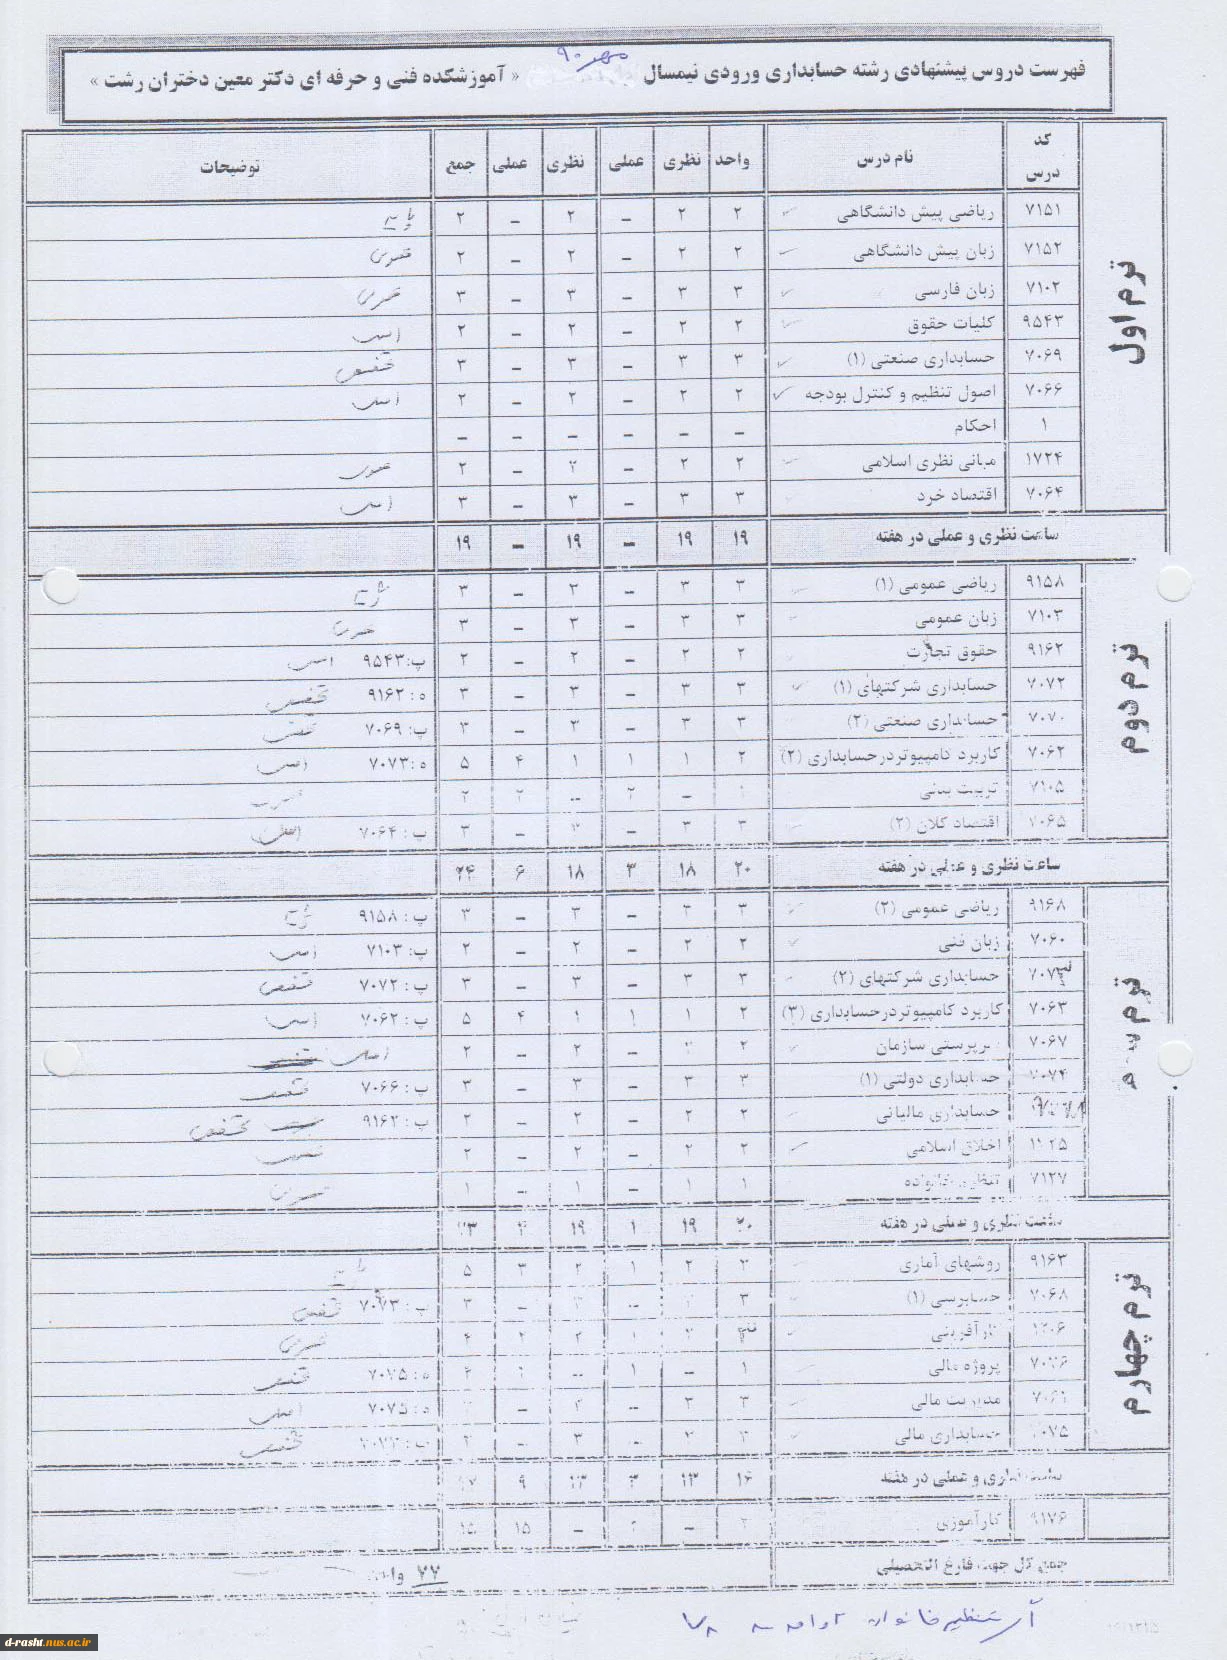 مهر ۹۰
فهرست دروس پیشنهادی رشته حسابداری ورودی نیمسال « آموزشکده فنی و حرفه ای دکتر معین دختران رشت »
کد درس نام درس واحد نظری عملی نظری عملی جمع توضیحات
ترم اول
۷۱۵۱ ریاضی پیش دانشگاهی ۲ ۲ – ۲ – ۲ پایه
۷۱۵۲ زبان پیش دانشگاهی ۲ ۲ – ۲ – ۲ عمومی
۷۱۰۲ زبان فارسی ۳ ۳ – ۳ – ۳ عمومی
۹۵۴۳ کلیات حقوق ۲ ۲ – ۲ – ۲ اصلی
۷۰۶۹ حسابداری صنعتی (۱) ۳ ۳ – ۳ – ۳ تخصصی
۷۰۶۶ اصول تنظیم و کنترل بودجه ۲ ۲ – ۲ – ۲ اصلی
۱ احکام – – – – – –
۱۷۲۴ مبانی نظری اسلامی ۲ ۲ – ۲ – ۲ عمومی
۷۰۶۴ اقتصاد خرد ۳ ۳ – ۳ – ۳ اصلی
ساعت نظری و عملی در هفته ۱۹ ۱۹ – ۱۹ – ۱۹
ترم دوم
۹۱۵۸ ریاضی عمومی (۱) ۳ ۳ – ۳ – ۳ پایه
۷۱۰۳ زبان عمومی ۳ ۳ – ۳ – ۳ عمومی
۹۱۶۲ حقوق تجارت ۲ ۲ – ۲ – ۲ پ: ۹۵۴۳ اصلی
۷۰۷۲ حسابداری شرکتهای (۱) ۳ ۳ – ۳ – ۳ ه: ۹۱۶۲ تخصصی
۷۰۷۰ حسابداری صنعتی (۲) ۳ ۳ – ۳ – ۳ پ: ۷۰۶۹ تخصصی
۷۰۶۲ کاربرد کامپیوتر در حسابداری (۲) ۲ ۱ ۱ ۱ ۴ ۵ ه: ۷۰۷۳ اصلی
۷۱۰۵ تربیت بدنی ۱ – ۲ – ۲ ۲ عمومی
۷۰۶۵ اقتصاد کلان (۲) ۳ ۳ – ۳ – ۳ پ: ۷۰۶۴ اصلی
ساعت نظری و عملی در هفته ۲۰ ۱۸ ۳ ۱۸ ۶ ۲۴
ترم سوم
۹۱۶۸ ریاضی عمومی (۲) ۳ ۳ – ۳ – ۳ پ: ۹۱۵۸ پایه
۷۰۶۰ زبان فنی ۲ ۲ – ۲ – ۲ پ: ۷۱۰۳ اصلی
۷۰۷۳ حسابداری شرکتهای (۲) ۳ ۳ – ۳ – ۳ پ: ۷۰۷۲ تخصصی
۷۰۶۳ کاربرد کامپیوتر در حسابداری (۳) ۲ ۱ ۱ ۱ ۴ ۵ پ: ۷۰۶۲ اصلی
۷۰۶۷ سرپرستی سازمان ۲ ۲ – ۲ – ۲ اصلی
۷۰۷۴ حسابداری دولتی (۱) ۳ ۳ – ۳ – ۳ پ: ۷۰۶۶ تخصصی
حسابداری مالیاتی ۲ ۲ – ۲ – ۲ پ: ۹۱۶۲ تخصصی
۱۱۲۵ اخلاق اسلامی ۲ ۲ – ۲ – ۲ عمومی
۷۱۲۷ تنظیم خانواده ۱ ۱ – ۱ – ۱ عمومی
ساعت نظری و عملی در هفته ۲۰ ۱۹ ۱ ۱۹ ۴ ۲۳
ترم چهارم
۹۱۶۳ روشهای آماری ۲ ۱ ۲ ۳ ۵ پایه
۷۰۶۸ حسابرسی (۱) ۳ – ۳ پ: ۷۰۷۳ تخصصی
کارآفرینی ۲ ۱ ۲ ۲ ۴ عمومی
۷۰۷۶ پروژه مالی ۱ – ۱ ه: ۷۰۷۵ تخصصی
مدیریت مالی ۳ ۳ – – ه: ۷۰۷۵ اصلی
۷۰۷۵ حسابداری مالی ۳ – ۳ – ۳ تخصصی
ساعت نظری و عملی در هفته ۱۶ ۱۳ ۳ ۱۳ ۹
۹۱۷۶ کارآموزی ۲ – ۲ – ۱۵ ۱۵
جمع کل جهت فارغ التحصیلی ۷۷ واحد
d-rasht.nus.ac.ir